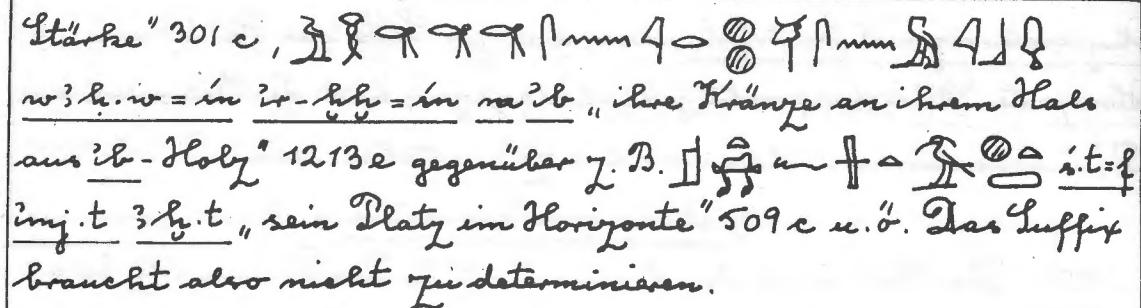 Stärke" 301 c,
wꜣḥ.w = śn ꞽr-ḫḫ = śn m ꞽb „ihre Kränze an ihrem Hals
aus ꞽb-Holz" 1213 e gegenüber z. B. ś.t=f
ꞽmj.t ꜣḫ.t „sein Platz im Horizonte" 509 c u. ö. Das Suffix
braucht also nicht zu determinieren.